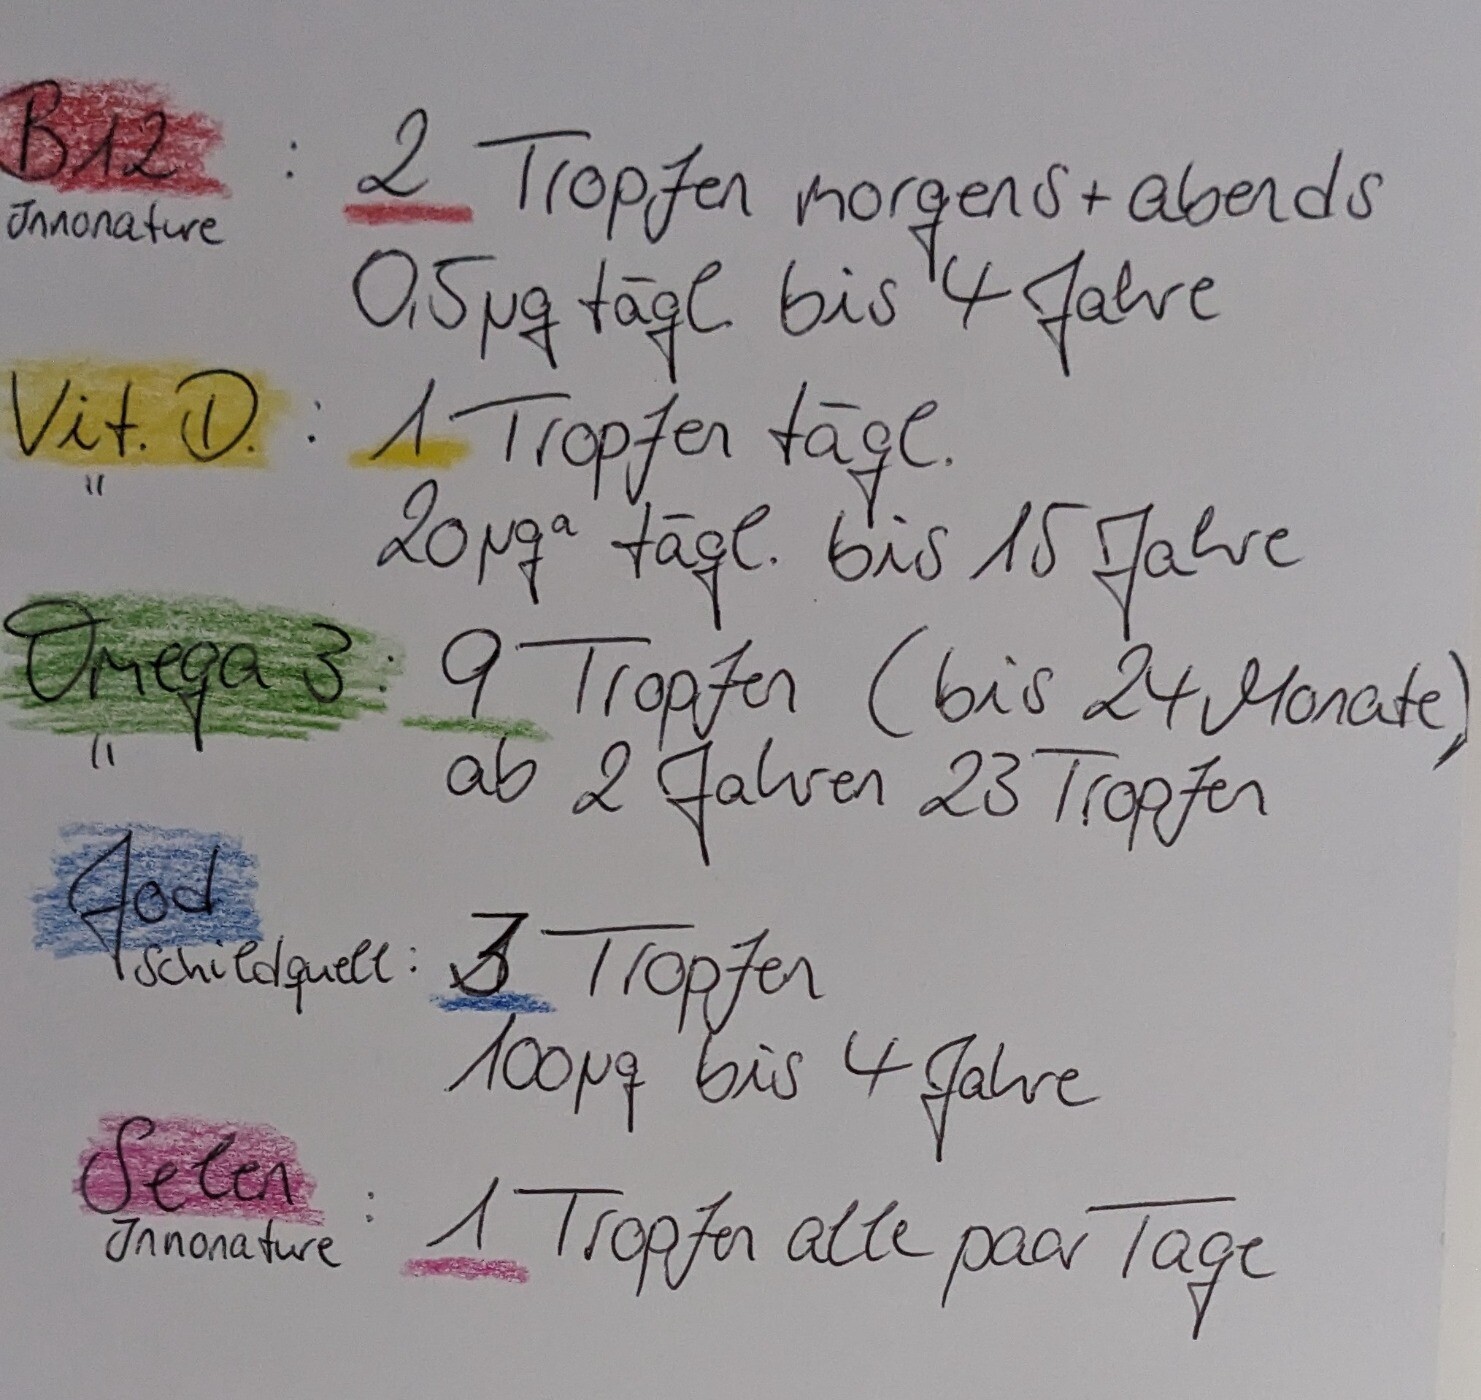 B12 : 2 Tropfen morgens + abends
Innonature
0,5µg tägl. bis 4 Jahre
Vit. D. : 1 Tropfen tägl.
"
20µgᵃ tägl. bis 15 Jahre
Omega 3: 9 Tropfen (bis 24 Monate)
"
ab 2 Jahren 23 Tropfen
Jod
Schildquell: 3 Tropfen
100µg bis 4 Jahre
Selen
Innonature : 1 Tropfen alle paar Tage